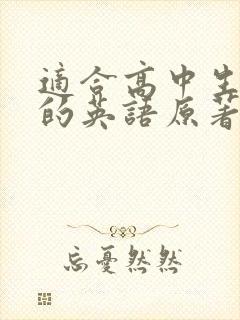 適合高中生
的英語原著
忘憂然然